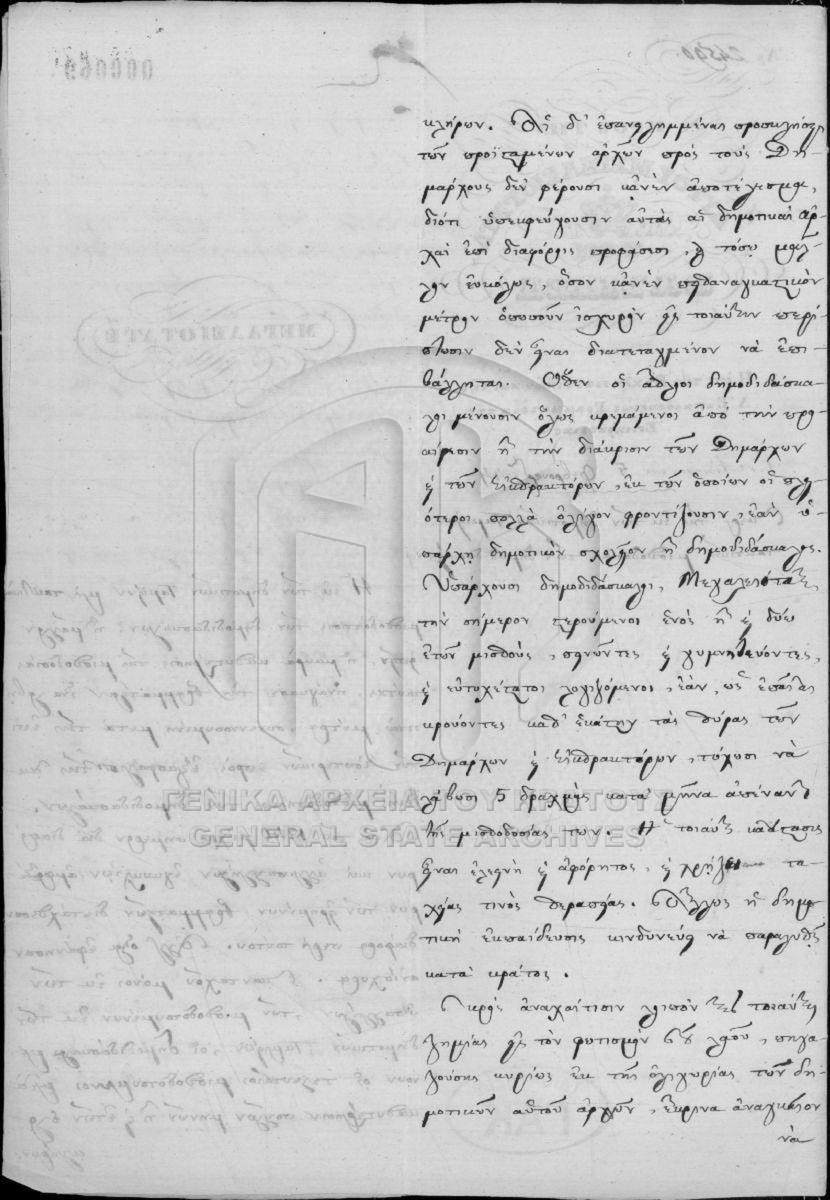 κλήρων. Αἱ δ' ἐπανειλημμέναι προσκλήσεις
τῶν προϊσταμένων ἀρχῶν πρὸς τοὺς Δη-
μάρχους δὲν φέρουσι κᾀνὲν ἀποτέλεσμα,
διότι ὑπεκφεύγουσιν αὐτὰς αἱ δημοτικαὶ ἀρ-
χαὶ ἐπὶ διαφόροις προφάσεσι, καὶ τόσῳ μᾶλ-
λον εὐκόλως, ὅσον κᾀνὲν καταναγκαστικὸν
μέτρον ὁπωσοῦν ἰσχυρὸν εἰς τοιαύτην περί-
στασιν δὲν εἶναι διατεταγμένον νὰ ἐπι-
βάλληται. Ὅθεν οἱ ἄθλιοι δημοδιδάσκα-
λοι μένουσιν ὅλως κρεμάμενοι ἀπὸ τὴν προ-
αίρεσιν ἢ τὴν διάκρισιν τῶν Δημάρχων
καὶ τῶν Εἰσπρακτόρων, ἐκ τῶν ὁποίων οἱ πλει-
ότεροι πολλὰ ὀλίγον φροντίζουσιν, ἐὰν ὑ-
πάρχῃ δημοτικὸν σχολεῖον ἢ δημοδιδάσκαλος.
Ὑπάρχουσι δημοδιδάσκαλοι, Μεγαλειότατε,
τὴν σήμερον στερούμενοι ἑνὸς ἢ καὶ δύο
ἐτῶν μισθοὺς, πεινῶντες καὶ γυμνητεύοντες,
καὶ εὐτυχέστατοι λογιζόμενοι, ἐὰν, ὡς ἐπαῖται
κρούοντες καθ' ἑκάστην τὰς θύρας τῶν
Δημάρχων καὶ Εἰσπρακτόρων, τύχωσι νὰ
λάβωσι 5 δραχμὰς κατὰ μῆνα ἀπέναντι
τῆς μισθοδοσίας των. Ἡ τοιαύτη κατάστασις
εἶναι ἐλεεινὴ καὶ ἀφόρητος, καὶ χρῄζει τα-
χείας τινὸς θεραπείας. Ἄλλως ἡ δημο-
τικὴ ἐκπαίδευσις κινδυνεύει νὰ παραλυθῇ
κατὰ κράτος.
Πρὸς ἀναχαίτισιν λοιπὸν τῆς τοιαύτης
ζημίας εἰς τὸν φωτισμὸν τοῦ λαοῦ, πηγα-
ζούσης κυρίως ἐκ τῆς ὀλιγωρίας τῶν δη-
μοτικῶν αὐτοῦ ἀρχῶν, ἔκρινα ἀναγκαῖον
νὰ
ΓΕΝΙΚΑ ΑΡΧΕΙΑ ΤΟΥ ΚΡΑΤΟΥΣ
GENERAL STATE ARCHIVES